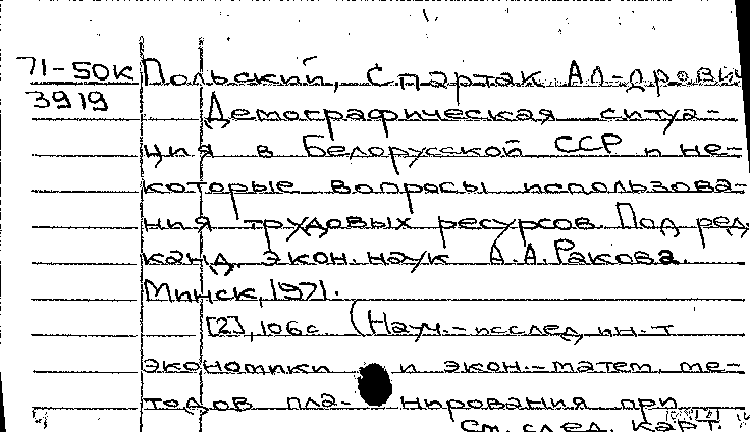 71-50к Польский, Спартак Ал-дрович
3919 Демографическая ситуа-
ция в Белорусской ССР и не-
которые вопросы использова-
ния трудовых ресурсов. Под ред.
канд. экон. наук А.А. Ракова.
Минск, 1971.
[2], 106с. (Науч.-исслед. ин-т
экономики и экон.-матем. ме-
тодов пла- нирования при
см. след. карт.